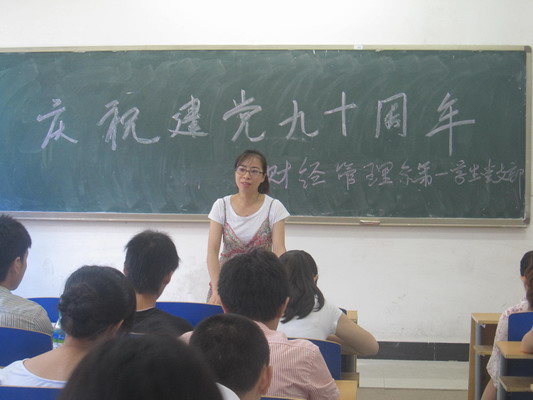 庆祝建党九十周年
财经管理系第一学生党支部